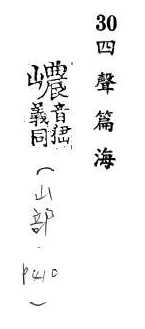 30四聲篇海
嶩音
義同
(山部.P410)